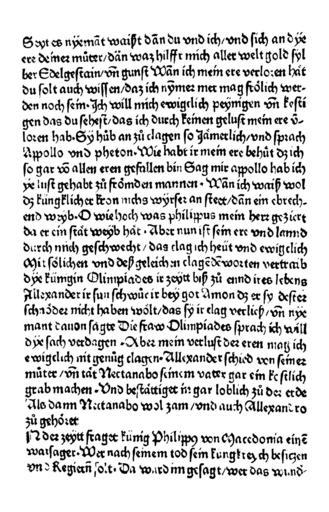 Seyt es nyemāt waißt dān du vnd ich/vnd sich an dye
ere deiner mūter/dān waz hilfft mich aller welt gold syl
ber Edelgestain/vn̄ gunst Wān ich mein ere verloren hāt
du solt auch wissen/daz ich nymer mer mag frölich wer-
den noch sein. Ich will mich ewigklich peynigen vn̄ kesti
gen das du sehest/das ich durch keinen gelust mein ere v̄-
loren hab. Sy hūb an zū clagen so Jämerlich/vnd sprach
Appollo vnd pheton. Wie habt ir mein ere behūt dz ich
so gar vō allen eren gefallen bin Sag mir appollo hab ich
ye lust gehabt zū frömden mannen. Wān ich waiß wol
dz küngklicher kron nichs wyrser an steet/dān ein ebrech-
end weyb. O wie hoch was philippus mein herz geziert
da er ein stāt weyb hāt. Aber nun ist sein ere vnd lannd
durch mich geschwecht/das clag ich heüt vnd ewigclich
Mit sölichen vnd deß geleichen clagēdē worten vertraib
dye künigin Olimpiades ir zeytt biß zū ennd ires lebens
Allexander ir sun schwūr ir bey got Amon dz er sy dester
schnöder nicht haben wölt/das sy ir clag verließ/vn̄ nye
mant dauon sagte Die fraw Olimpiades sprach ich will
dye sach verdagen. Aber mein verlust der eren mag ich
ewigklich nit genūg clagen. Allexander schied von seiner
mūter/vn̄ tāt Nectanabo seinem vater gar ein kestlich
grab machen. Vnd bestättiget in gar loblich zū der erde
Als dann Nectanabo wol zam/vnd auch Allexandro
zū gehöret
IN der zeytt fraget künig Philipp9 von Macedonia einē
warsager. Wer nach seinem tod sein küngkreych besitzen
vnd Regieren solt. Da ward im gesagt/wer das wund-